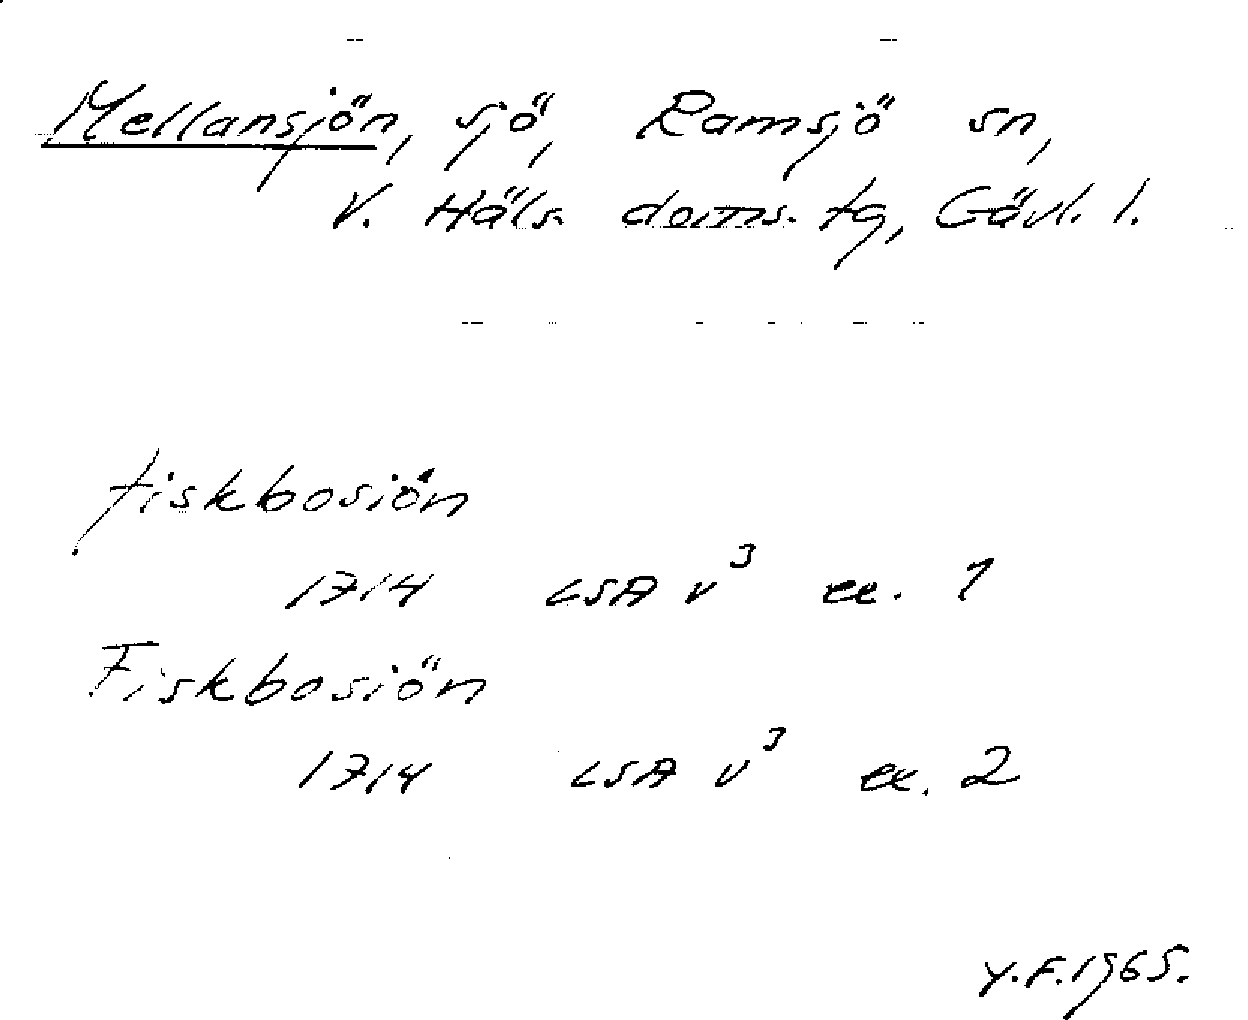 Mellansjön, sjö, Ramsjö sn,
V. Häls. doms. tg, Gävl. l.
fiskbosiön
1714 LSA V³ ex. 1
Fiskbosiön
1714 LSA V³ ex. 2
Y.F. 1965.